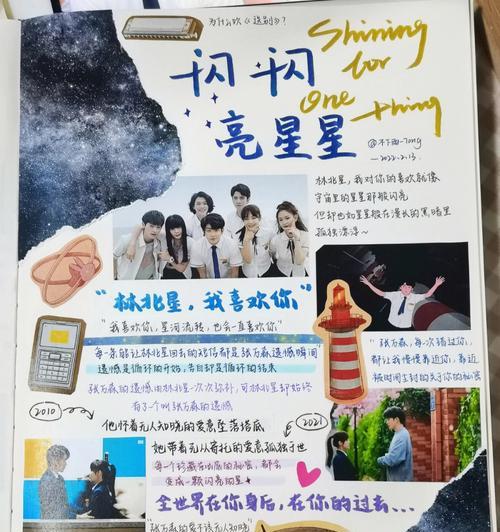 为什么吹《送别》?
一闪一闪
亮星星
Shining
for
One
thing
@不下雨-Tong
—2022.2.13.
林北星,我对你的喜欢就像
宇宙里的星星那般闪亮
但却也如星星般在漫长的黑暗里
孤独漂浮~
"林北星,我喜欢你"
"我喜欢你,星河流转,也会一直喜欢你"
每一条能让林北星回去的短信都是张万森遗憾瞬间
遗憾是循环的开始,告白却是循环的结束
张万森的遗憾由林北星一次次弥补,可林北星却始终
有了个叫张万森的遗憾
"张万森,每一次错过你,
都让我慢慢靠近你,靠近
被时间尘封的关于你的秘密
2010
他怀着无人知晓的爱意坠落塔底
2021
她带着无从寄托的爱意孤独于世
每一个珍藏在心底的秘密,都会
变成一颗闪亮的星
全世界在你身后,在你的过去...
"张万森的爱于该无人知晓"